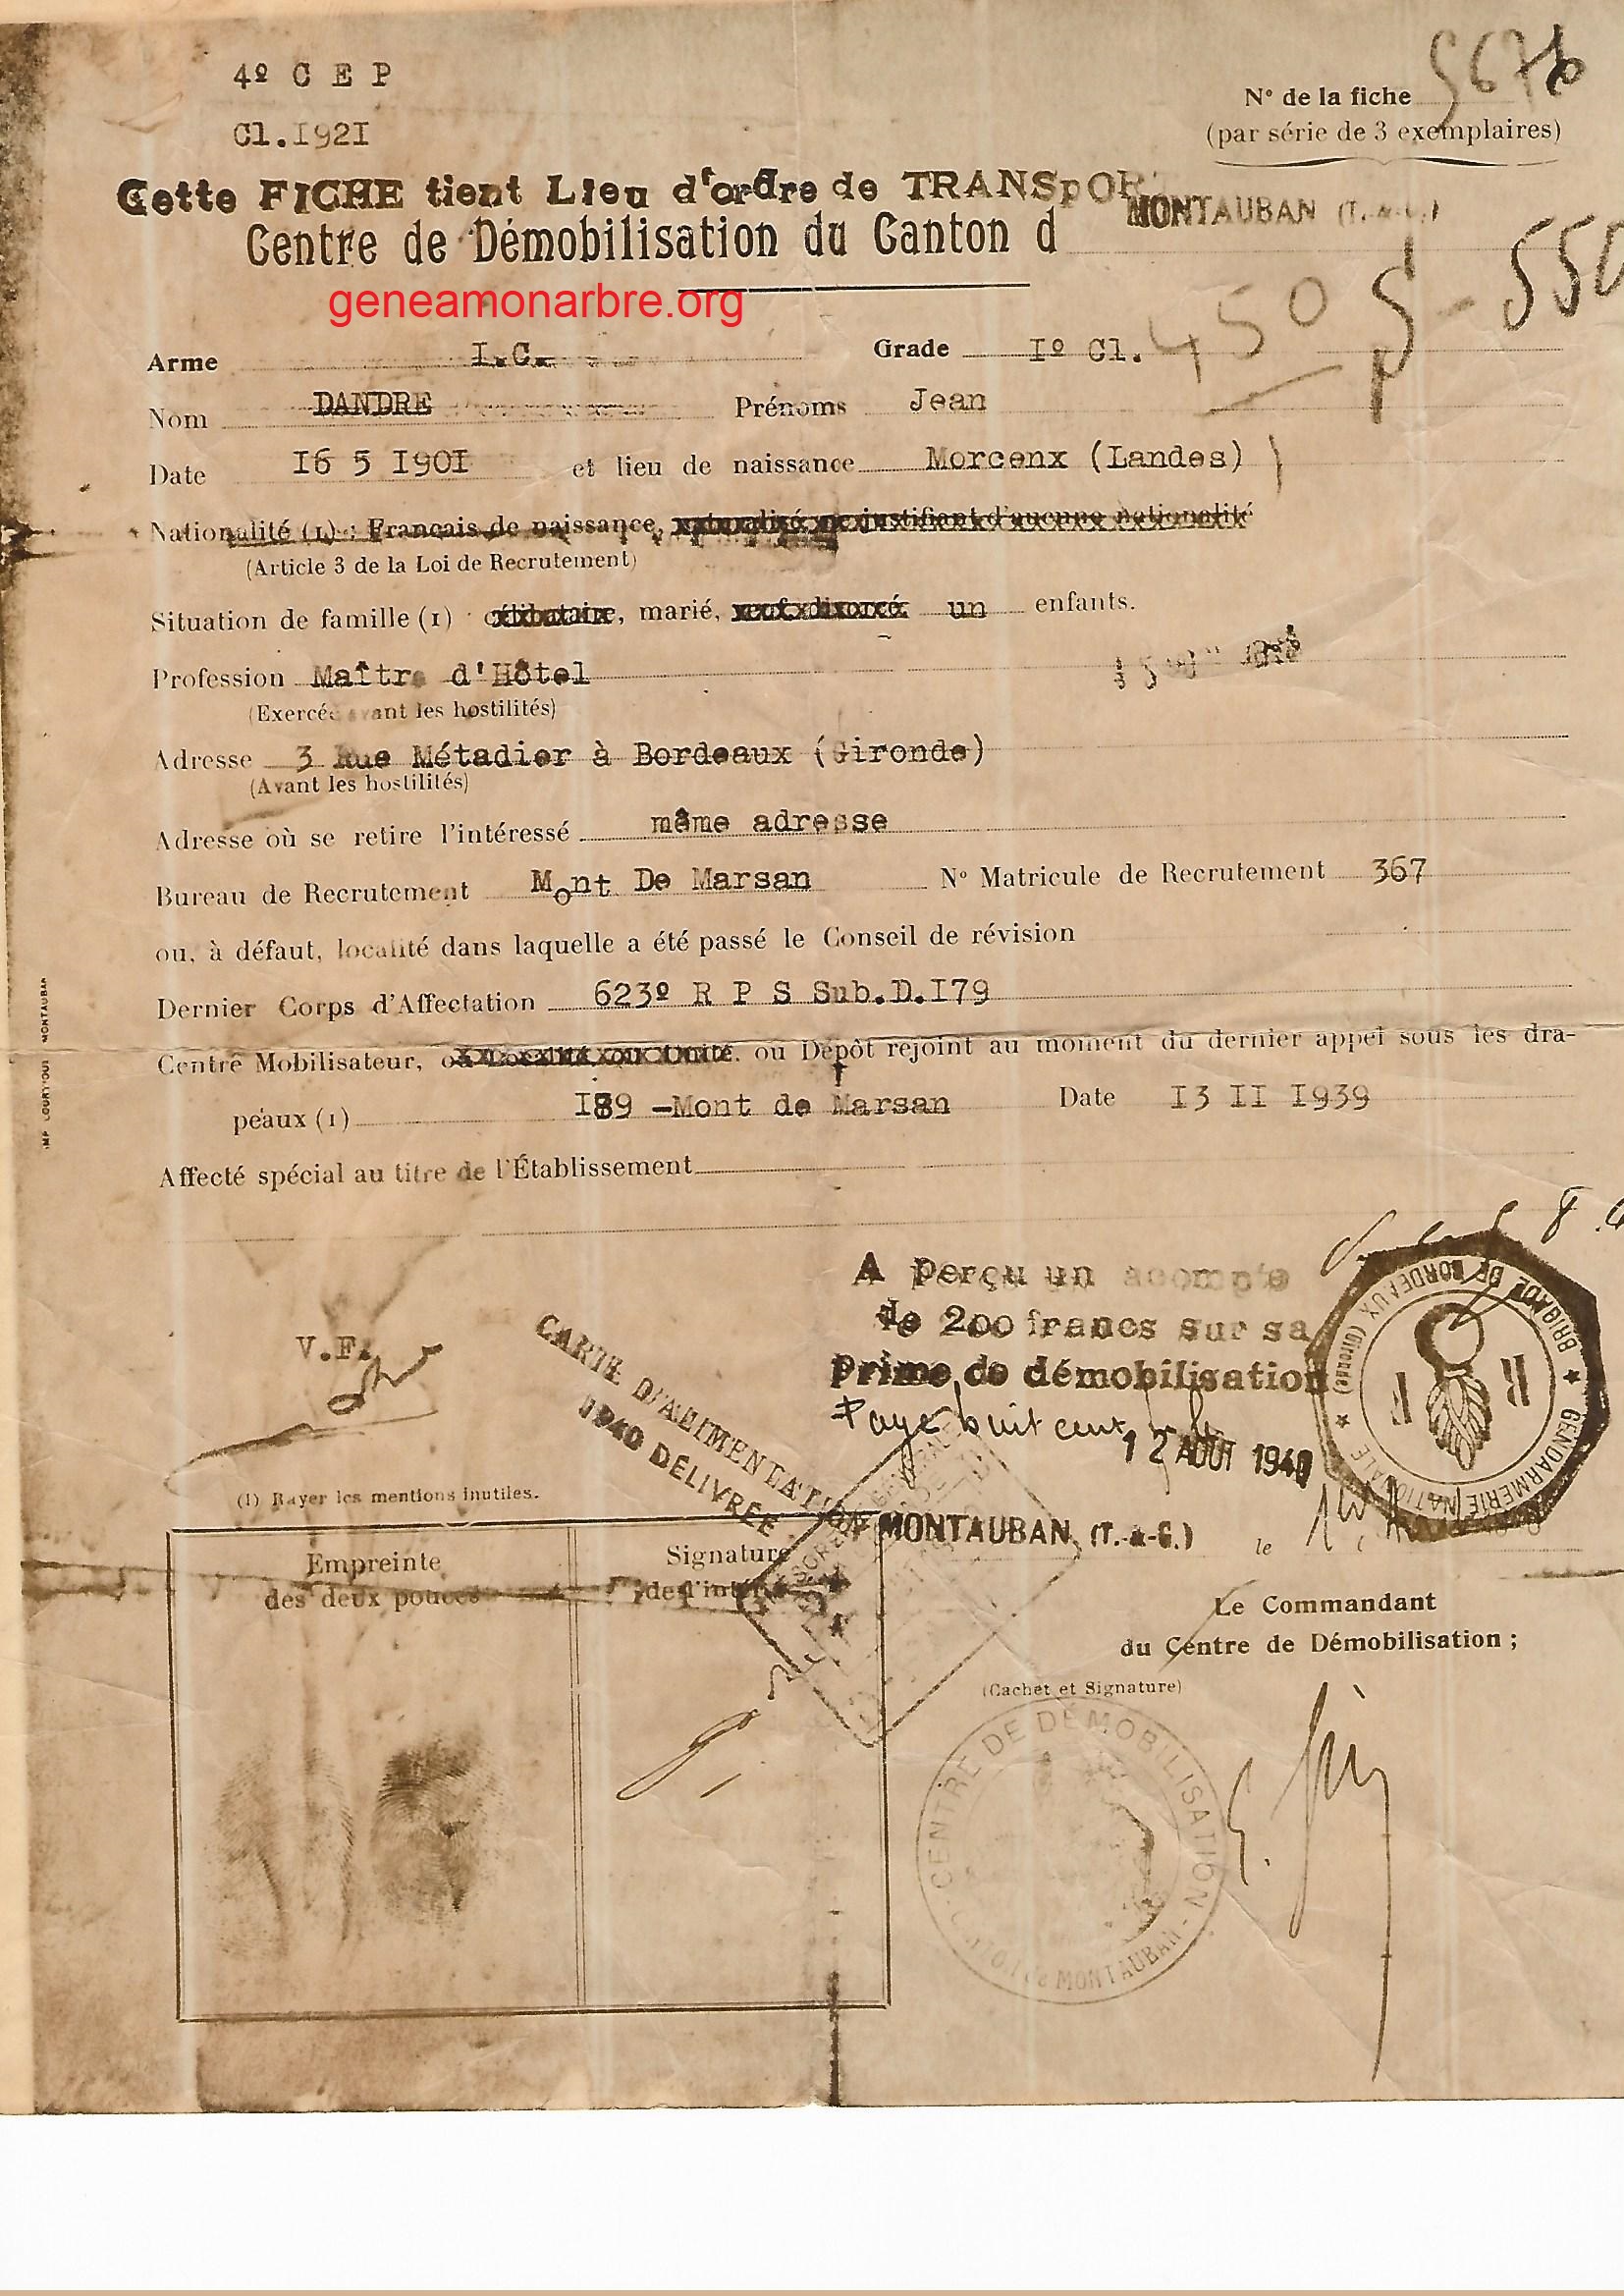 4º C E P
Cl.I92I
N° de la fiche
(par série de 3 exemplaires)
Cette FICHE tient Lieu d'ordre de TRANSPOR
MONTAUBAN (T.-&-G.)
Centre de Démobilisation du Canton d
geneamonarbre.org
450
550
Arme I.C. Grade Iº Cl.
Nom DANDRE Prénoms Jean
Date I6 5 I90I et lieu de naissance Morcenx (Landes)
Nationalité (1) : Français de naissance, naturalisé ne justifiant d'aucune nationalité
(Article 3 de la Loi de Recrutement)
Situation de famille (1) célibataire, marié, veuf divorcé un enfants.
Profession Maître d'Hôtel
(Exercée avant les hostilités)
Adresse 3 Rue Métadier à Bordeaux (Gironde)
(Avant les hostilités)
Adresse où se retire l'intéressé même adresse
Bureau de Recrutement Mont De Marsan N° Matricule de Recrutement 367
ou, à défaut, localité dans laquelle a été passé le Conseil de révision
Dernier Corps d'Affectation 623º R P S Sub.D.I79
Centre Mobilisateur, ou Dépôt rejoint au moment du dernier appel sous les dra-
peaux (1) I89 -Mont de Marsan Date I3 II I939
Affecté spécial au titre de l'Établissement
A perçu un acompte
de 200 francs sur sa
Prime de démobilisation
Payé huit cent
12 AOUT 1940
V.F.
CARTE D'ALIMENTATION
1940 DÉLIVRÉE
GENDARMERIE NATIONALE ★ BRIGADE DE BORDEAUX (Gironde) ★
(1) Rayer les mentions inutiles.
MONTAUBAN (T.-&-G.) le
Empreinte
des deux pouces
Signature
de l'intér
Le Commandant
du Centre de Démobilisation ;
(Cachet et Signature)
CENTRE DE DÉMOBILISATION
MONTAUBAN
IMP. MONTAUBAN